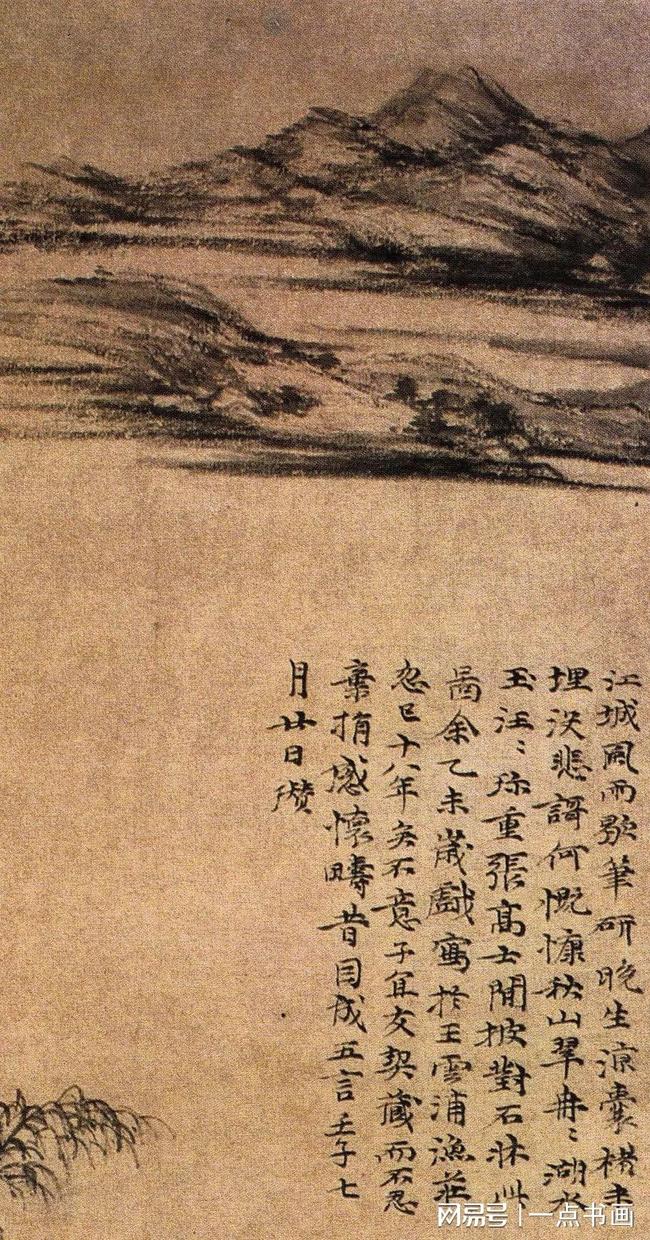 江城風雨歇筆研晚生涼囊楮未
埋没悲謌何慨慷秋山翠冉〻湖水
玉汪〻珎重張高士閒披對石牀此
啚余乙未歲戲寫於王雲浦漁莊
忽已十八年矣不意子宜友契藏而不忍
棄捐感懷疇昔因成五言壬子七
月廿日瓚
网易号 | 一点书画